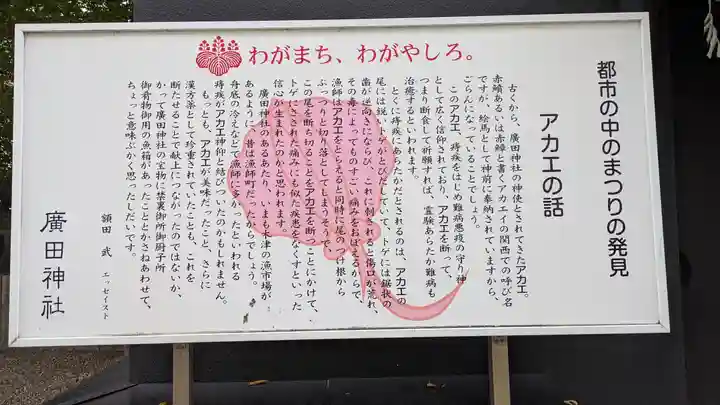 わがまち、わがやしろ。
都市の中のまつりの発見
アカエの話
古くから、廣田神社の神使とされてきたアカエ。
赤鱝あるいは赤鱏と書くアカエイの関西での呼び名
ですが、絵馬として神前に奉納されていますから、
ごらんになっていることでしょう。
このアカエ、痔疾をはじめ難病悪疫の守り神
として広く信仰されており、アカエを断って、
つまり断食して祈願すれば、霊験あらたか難病も
治癒するといわれます。
とくに痔疾にあらたかだとされるのは、アカエの
尾には鋭いトゲがとびだしていて、トゲには鋸状の
歯が逆向きにならび、これに刺されると傷口が荒れ、
その毒によってものすごい痛みをおぼえるからで、
漁師はアカエをとらえると同時に尾のつけ根から
ぶっつりと切り落としてしまうそうで、
この尾を断ち切ることをアカエを断つことにかけて、
トゲにさされた痛みにも似た疾患をなくすといった
信心が生まれたのかと思われます。
廣田神社のあるあたり、いまも木津の魚市場が
あるように、昔は漁師町だったからでしょう。
舟底の冷えなどで漁師に多かったといわれる
痔疾がアカエ神仰と結びついたのかもしれません。
もっとも、アカエが美味だったこと、さらに
漢方薬として珍重されていたことも、これを
断たせることで献上につながったのではないか、
かつて廣田神社の宝物に禁裏御所御厨子所
御肴物御用の魚箱があったこととかさねあわせて、
ちょっと意味ぶかく思ったしだいです。
額田 武 エッセイスト
廣田神社